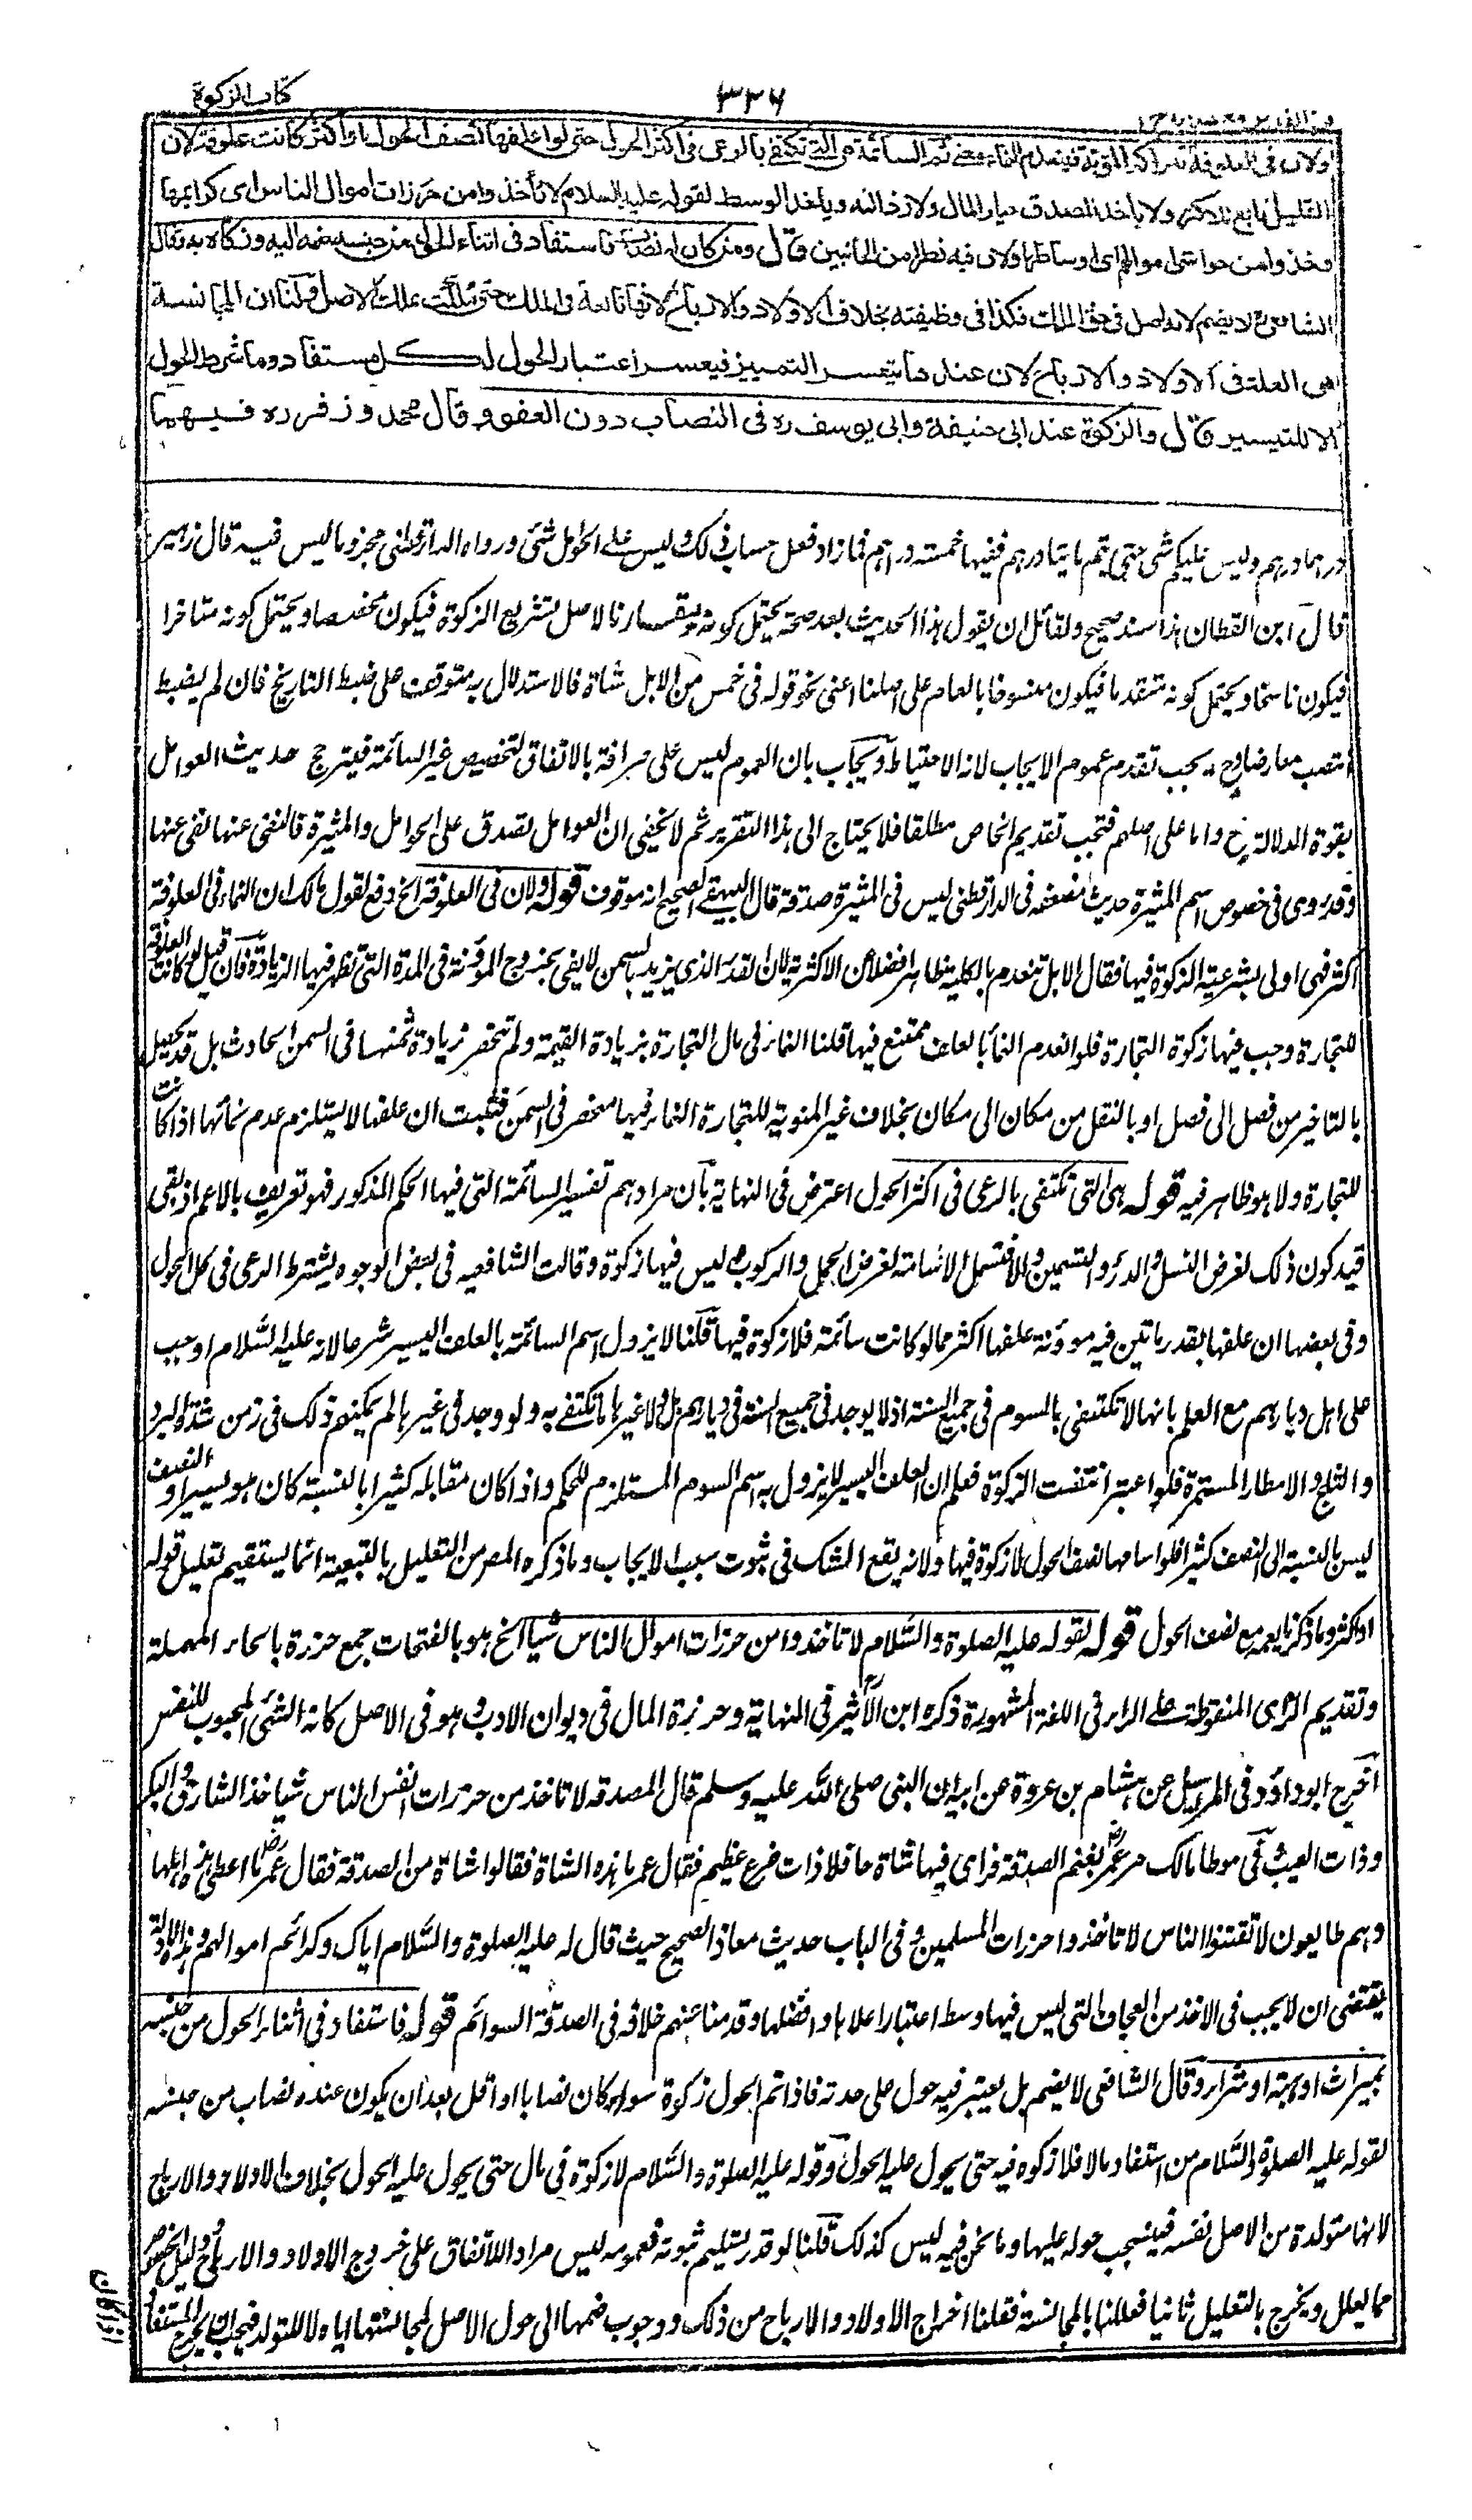 كتاب الزكوة
٣٣٦
ولان فى العلوفة تتراكم المؤنة فينعدم النماء معنى ثم السائمة هى التى تكتفى بالرعى فى اكثر الحول حتى لو اعلفها نصف الحول او اكثر كانت علوفة لان
القليل تابع للاكثر ولا ياخذ المصدق خيار المال ولا رذالته وياخذ الوسط لقوله عليه السلام لا تأخذوا من حزرات اموال الناس اى كرائمها
وخذوا من حواشى اموالهم اى اوساطها ولان فيه نظرا من الجانبين قال ومن كان له نصاب فاستفاد فى اثناء الحول من جنسه ضمه اليه وزكاه به وقال
الشافعى لا يضم لانه اصل فى حق الملك فكذا فى وظيفته بخلاف الاولاد والارباح لانها تابعة فى الملك حتى ملكت بملك الاصل ولنا ان المجانسة
هى العلة فى الاولاد والارباح لان عندها يتعسر التمييز فيعسر اعتبار الحول لكل مستفاد وما شرط الحول
الا للتيسير قال والزكوة عند ابى حنيفة وابى يوسف ره فى النصاب دون العفو وقال محمد وزفر ره فيهما
درهما درهم وليس عليكم شئ حتى يتم مايتا درهم ففيها خمسة دراهم فما زاد فعلى حساب ذلك وليس على العوامل شئ ورواه الدارقطنى مجزوما ليس فيه قال زهير
قال ابن القطان هذا سند صحيح ولقائل ان يقول هذا الحديث بعد صحته يحتمل كونه مقارنا لاصل تشريع الزكوة فيكون مخصصا ويحتمل كونه متاخرا
فيكون ناسخا ويحتمل كونه متقدما فيكون منسوخا بالعام على اصلنا اعنى نحو قوله فى خمس من الابل شاة فالاستدلال به متوقف على ضبط التاريخ فان لم يضبط
انتصب معارضا وح يجب تقدم عموم الايجاب لانه الاحتياط ويجاب بان العموم ليس على صرافة بالاتفاق لتخصيص غير السائمة فيترجح حديث العوامل
بقوة الدلالة ح واما على اصلهم فتجب تقديم الخاص مطلقا فلا يحتاج الى هذا التقرير ثم لا يخفى ان العوامل تصدق على الحوامل والمثيرة فالنفى عنها نفى عنها
وقد روى فى خصوص اسم المثيرة حديث مضعف فى الدارقطنى ليس فى المثيرة صدقة قال البيهقى الصحيح انه موقوف قوله ولان فى العلوفة الخ دفع لقول مالك ان النماء فى العلوفة
اكثر فهى اولى بشرعية الزكوة فيها فقال لا بل تنعدم بالكلية ظاهرا فضلا عن الاكثرية لان القدر الذى يزيد بالسمن لا يفى بخروج المؤنة فى المدة التى تظهر فيها الزيادة فان قيل لو كانت العلوفة
للتجارة وجب فيها زكوة التجارة فلو انعدم النماء بالعلف ممتنع فيها قلنا النماء فى مال التجارة بزيادة القيمة ولم تنحصر زيادة ثمنها فى السمن الحادث بل قد يحصل
بالتاخير من فصل الى فصل او بالنقل من مكان الى مكان بخلاف غير المنوية للتجارة النماء فيها منحصر فى السمن فثبت ان علفها لا يستلزم عدم نمائها اذا كانت
للتجارة ولا هو ظاهر فيه قوله هى التى تكتفى بالرعى فى اكثر الحول اعترض فى النهاية بان مرادهم تفسير السائمة التى فيها الحكم المذكور فهو تعريف بالاعم اذ بقى
قيد كون ذلك لغرض النسل والدر والتسمين والا فتشمل الاسامة لغرض الحمل والركوب وليس فيها زكوة وقالت الشافعيه فى بعض الوجوه يشترط الرعى فى كل الحول
وفى بعضها ان علفها بقدر ما تبين فيه مؤونة علفها اكثر مما لو كانت سائمة فلا زكوة فيها قلنا لا يزول اسم السائمة بالعلف اليسير شرعا لانه عليه السلام اوجب
على اهل ديارهم مع العلم بانها لا تكتفى بالسوم فى جميع السنة اذ لا يوجد فى جميع السنة فى ديارهم بل ولا غيرها ما تكتفى به ولو وجد فى غيرها لم يمكنهم ذلك فى زمن شدة البرد
والثلج والامطار المستمرة فلو اعتبر انتفت الزكوة فعلم ان العلف اليسير لا يزول به اسم السوم المستلزم للحكم واذا كان مقابله كثيرا بالنسبة كان هو يسيرا والنصف
ليس بالنسبة الى النصف كثيرا فلو اسامها نصف الحول لا زكوة فيها ولانه يقع الشك فى ثبوت سبب الايجاب وما ذكره المص من التعليل بالتبعية انما يستقيم تعليل قوله
او اكثر وما ذكرنا يعمه مع نصف الحول قوله لقوله عليه الصلوة والسلام لا تاخذوا من حزرات اموال الناس شيا الخ هو بالفتحات جمع حزرة بالحاء المهملة
وتقديم الزاى المنقوطة على الراء فى اللغة المشهورة ذكره ابن الاثير فى النهاية وحرزة المال فى ديوان الادب وهو فى الاصل كانه الشئ المحبوب للنفس
اخرج ابو داؤد فى المراسيل عن هشام بن عروة عن ابيه ان النبى صلى الله عليه وسلم قال لمصدقه لا تاخذ من حزرات انفس الناس شيا خذ الشارف والبكر
وذات العيب وفى موطا مالك مر عمر بغنم الصدقة فراى فيها شاة حافلا ذات ضرع عظيم فقال عمر ما هذه الشاة فقالوا شاة من الصدقة فقال عمر ما اعطى هذه اهلها
وهم طايعون لا تفتنوا الناس لا تاخذوا حزرات المسلمين وفى الباب حديث معاذ الصحيح حيث قال له عليه الصلوة والسلام اياك وكرائم اموالهم وهذه الادلة
يقتضى ان لا يجب فى الاخذ من العجاف التى ليس فيها وسط اعتبار اعلاها وافضلها وقدمنا عنهم خلافه فى الصدقة السوائم قوله فاستفاد فى اثناء الحول من جنسه
بميراث او هبة او شراء وقال الشافعى لا يضم بل يعتبر فيه حول على حدته فاذا تم الحول زكوة سواء كان نصابا او اقل بعد ان يكون عنده نصاب من جنسه
لقوله عليه الصلوة والسلام من استفاد مالا فلا زكوه فيه حتى يحول عليه الحول وقوله عليه الصلوة والسلام لا زكوة فى مال حتى يحول عليه الحول بخلاف الاولاد والارباح
لانها متولدة من الاصل نفسه فينسحب حوله عليها وما نحن فيه ليس كذلك قلنا لو قدر تسليم ثبوته فعمومه ليس مرادا للاتفاق على خروج الاولاد والارباح ودليل الخصوص
مما يعلل ويخرج بالتعليل ثانيا فعللنا بالمجانسة فقلنا اخراج الاولاد والارباح من ذلك ووجوب ضمها الى حول الاصل لمجانستها اياه لا للتولد فيجب ان يخرج المستفاد
اذا كان